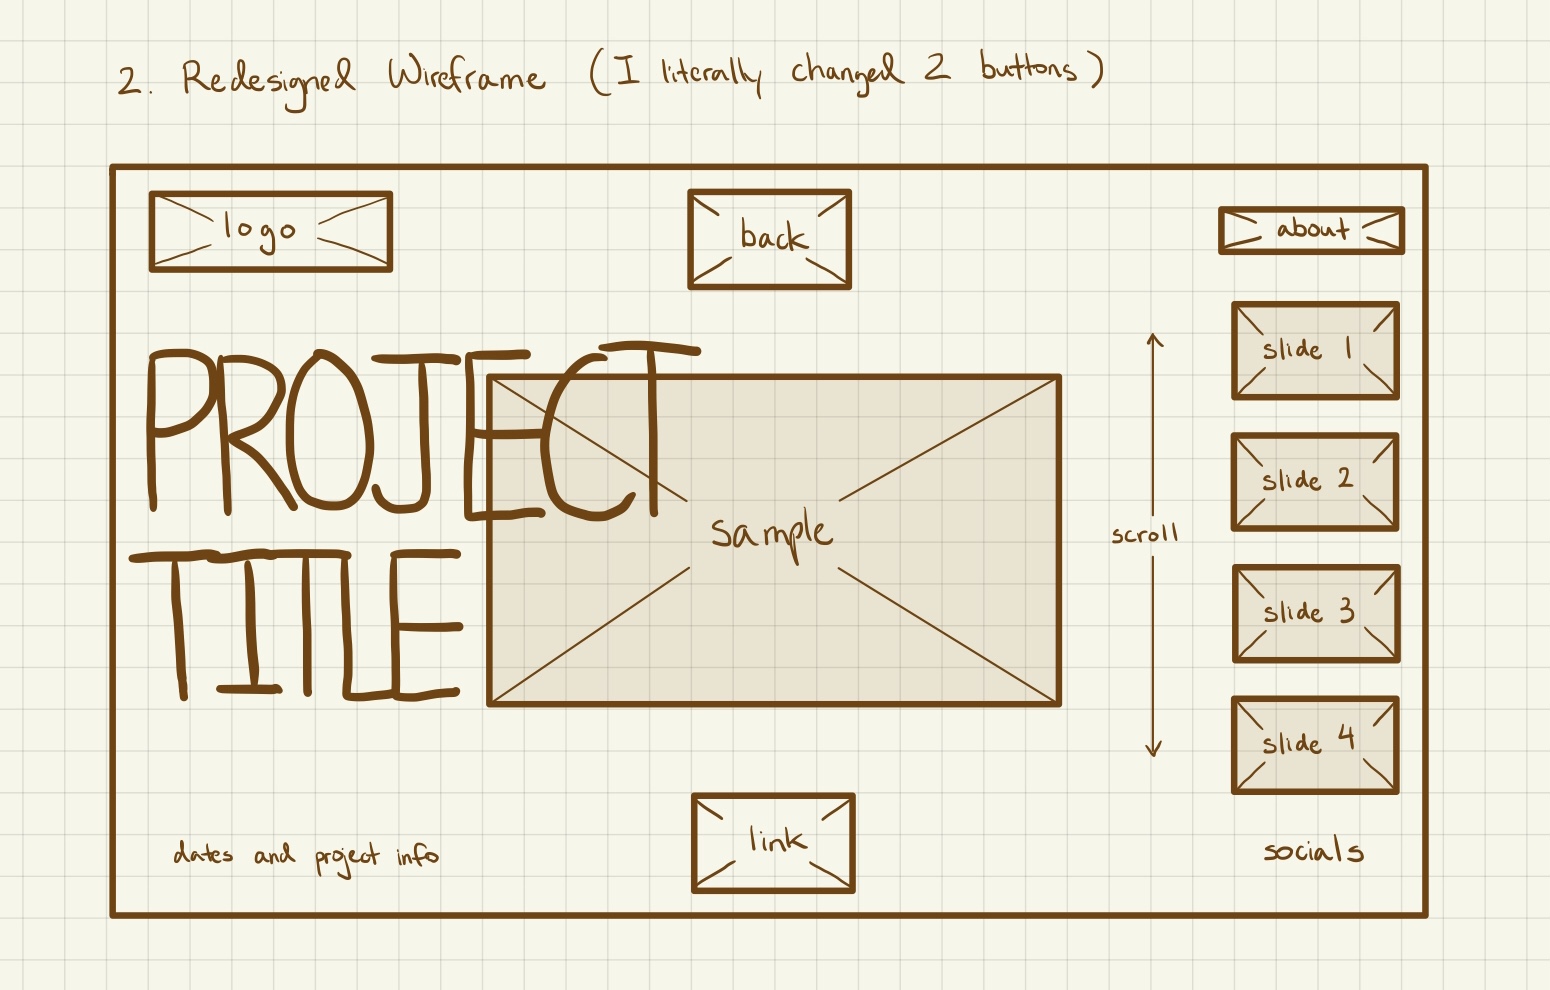 2. Redesigned Wireframe (I literally changed 2 buttons)
logo
back
about
PROJECT
TITLE
sample
scroll
slide 1
slide 2
slide 3
slide 4
dates and project info
link
socials